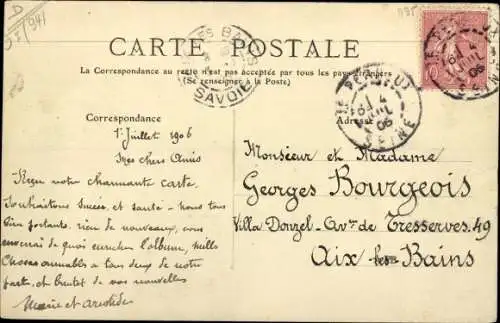 D
57941
CARTE POSTALE
La Correspondance au recto n'est pas acceptée par tous les pays étrangers
(Se renseigner à la Poste)
LES BAINS
SAVOIE
LE PERREUX
SEINE
4
JUIL
06
Correspondance
Adresse
1er Juillet 1906
Mes chers Amis
Reçu votre charmante carte.
Souhaitons succès et santé - nous tous
bien portants, rien de nouveaux, vous
enverrai de quoi enrichir l'album, mille
Choses aimables à tous deux de notre
part, et bientôt de vos nouvelles
Marie et Aristide
Monsieur et Madame
Georges Bourgeois
Villa Donzel - Av.ue de Tresserves. 49
Aix les Bains